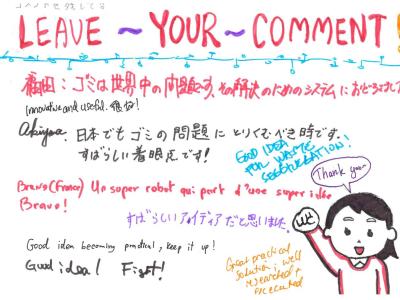 LEAVE ~ YOUR ~ COMMENT!
福田：ゴミは世界中の問題です。その解決のためのシステムにおどろきまし
Innovative and useful.
Akiyama: 日本でもゴミの問題にとりくむべき時です。
すばらしい着眼点です！
GOOD IDEA
FOR WASTE
SEGREGATION!
Bravo (France) Un super robot qui part d'une super idée
Bravo!
Thank you~
すばらしいアイディアだと思いました。
Good idea becoming practical, keep it up!
Good idea! Fight!
Great practical
solution; well
researched &
executed